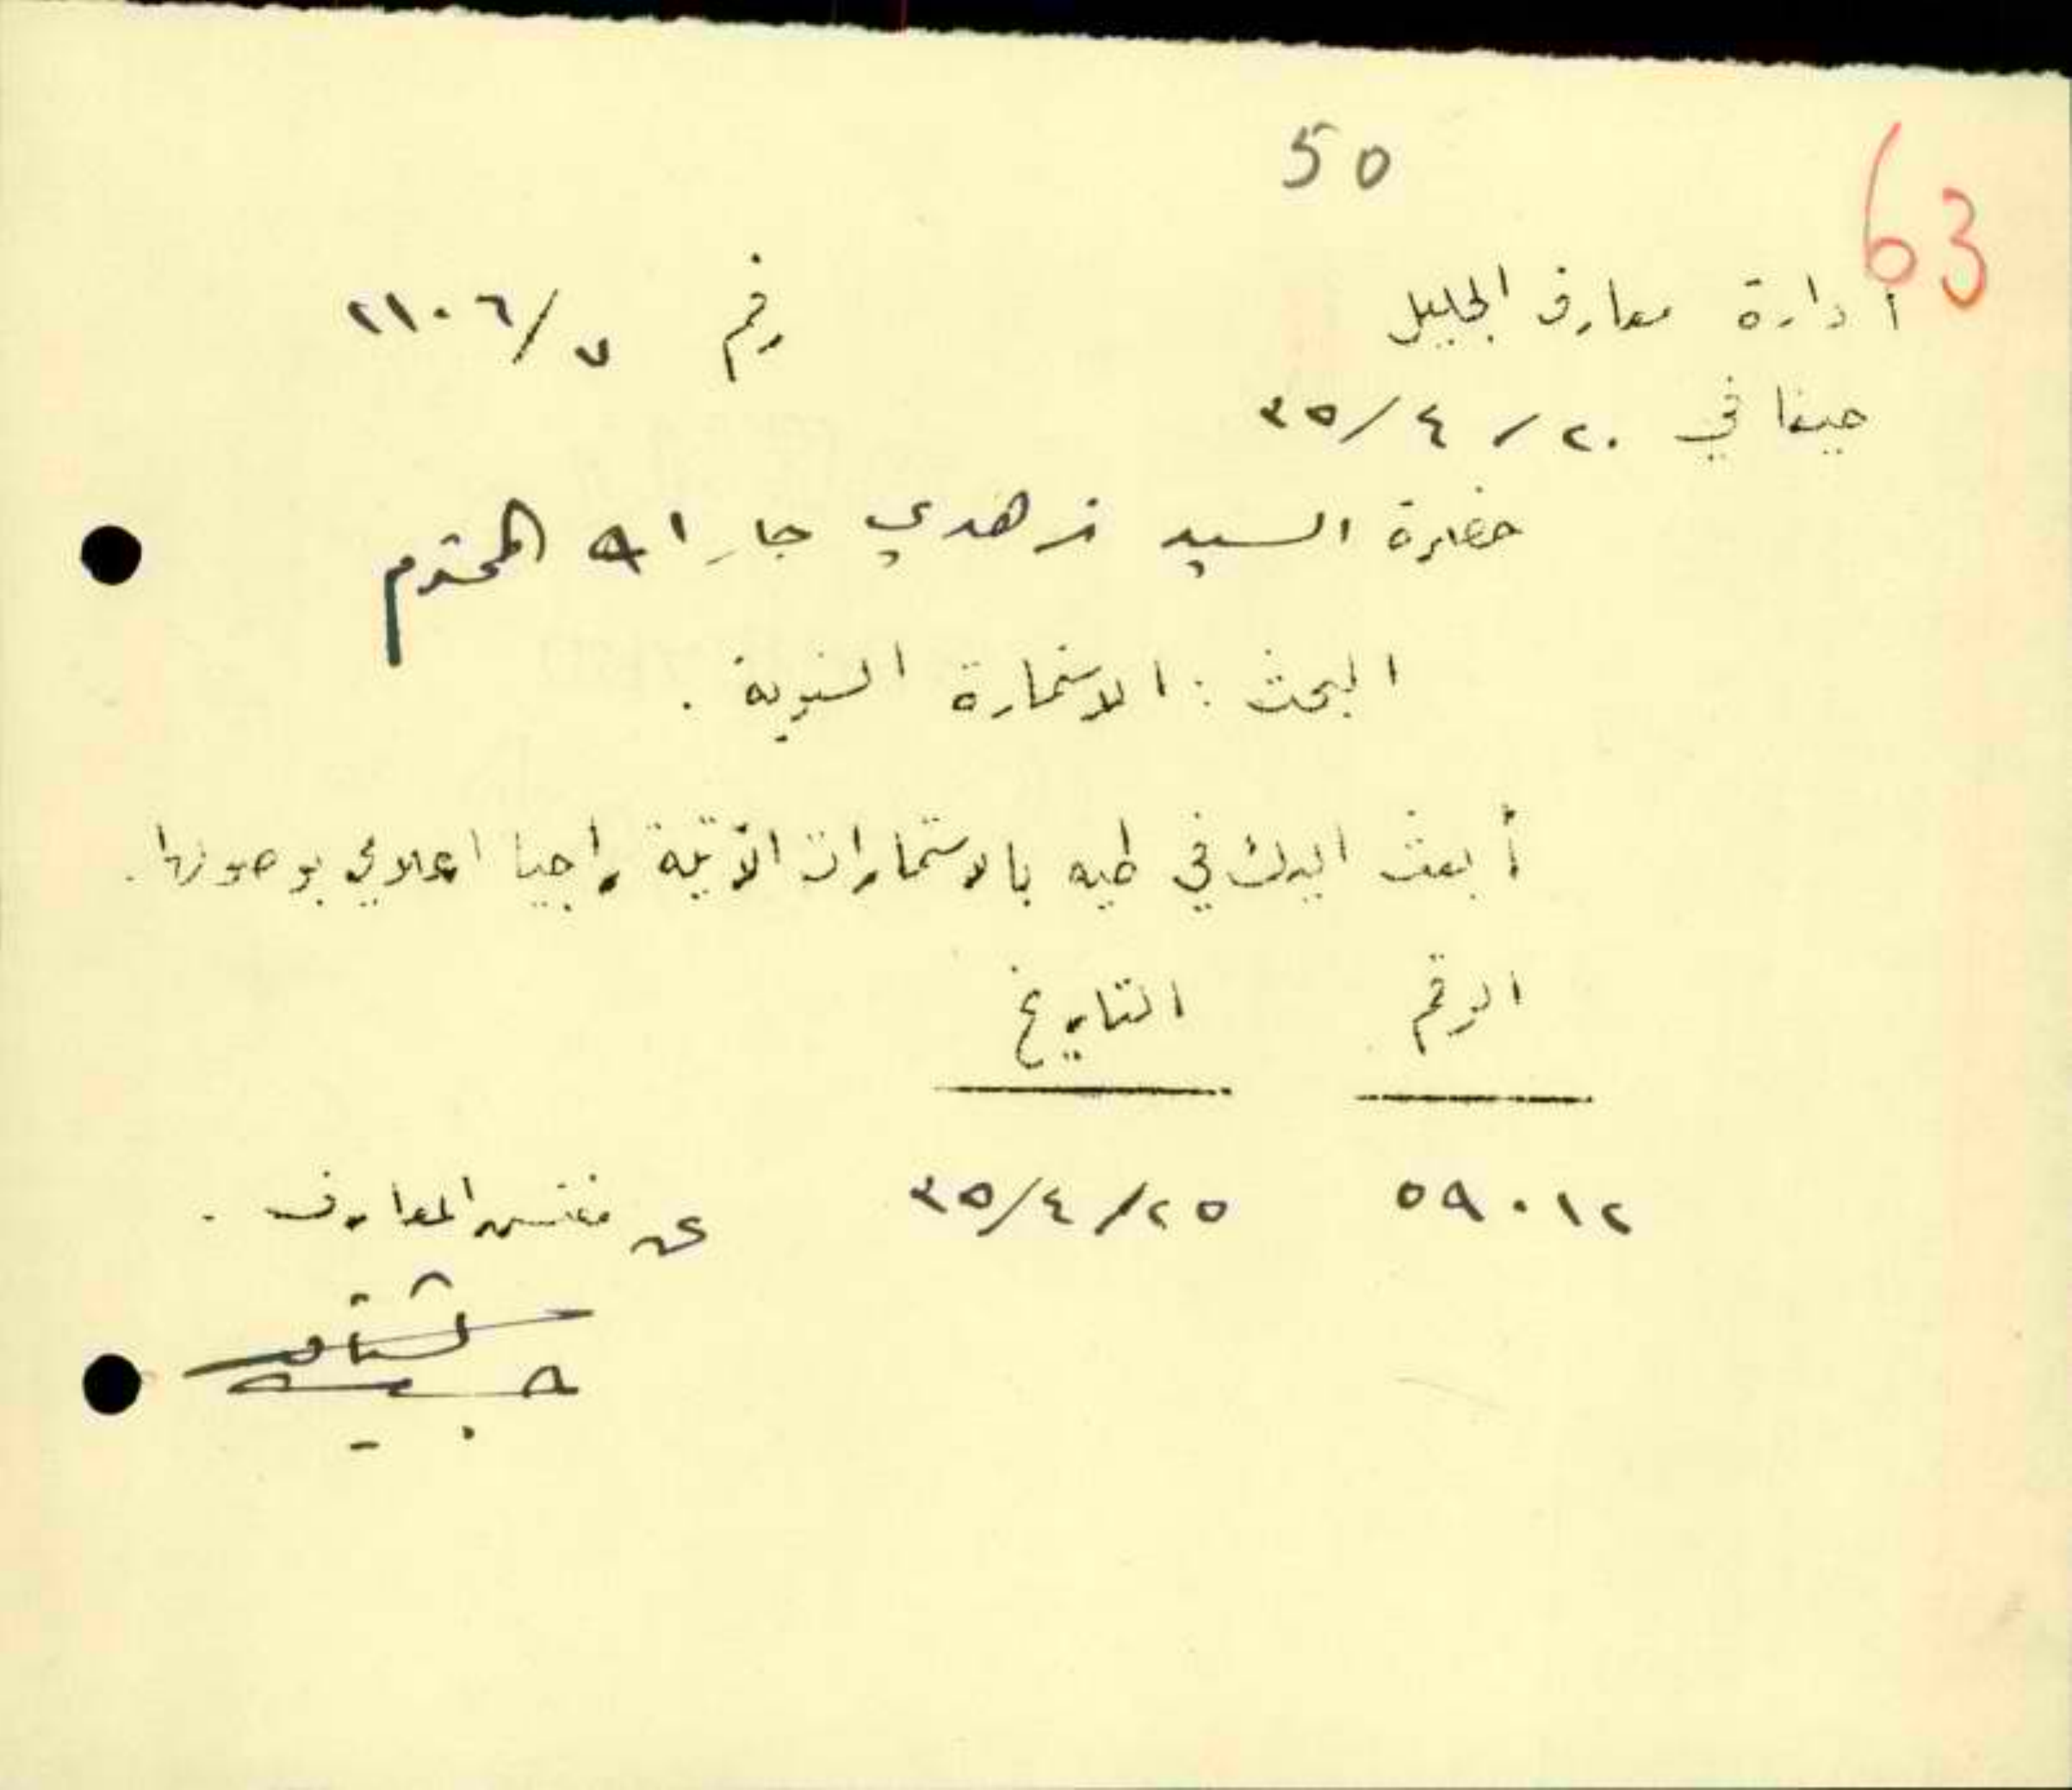 50
63
أدارة معارف الجليل
رقم ٧/٢١٠٦
حيفا في ٢٠/٤/٣٥
حضرة السيد زهدي جار الله المحترم
البحث : الاستمارة السنوية .
أبعث اليك في طيه بالاستمارات الآتية راجيا اعلامي بوصولها .
الرقم التاريخ
٥٩٠١٢ ٢٥/٤/٣٥
عن مفتش المعارف .